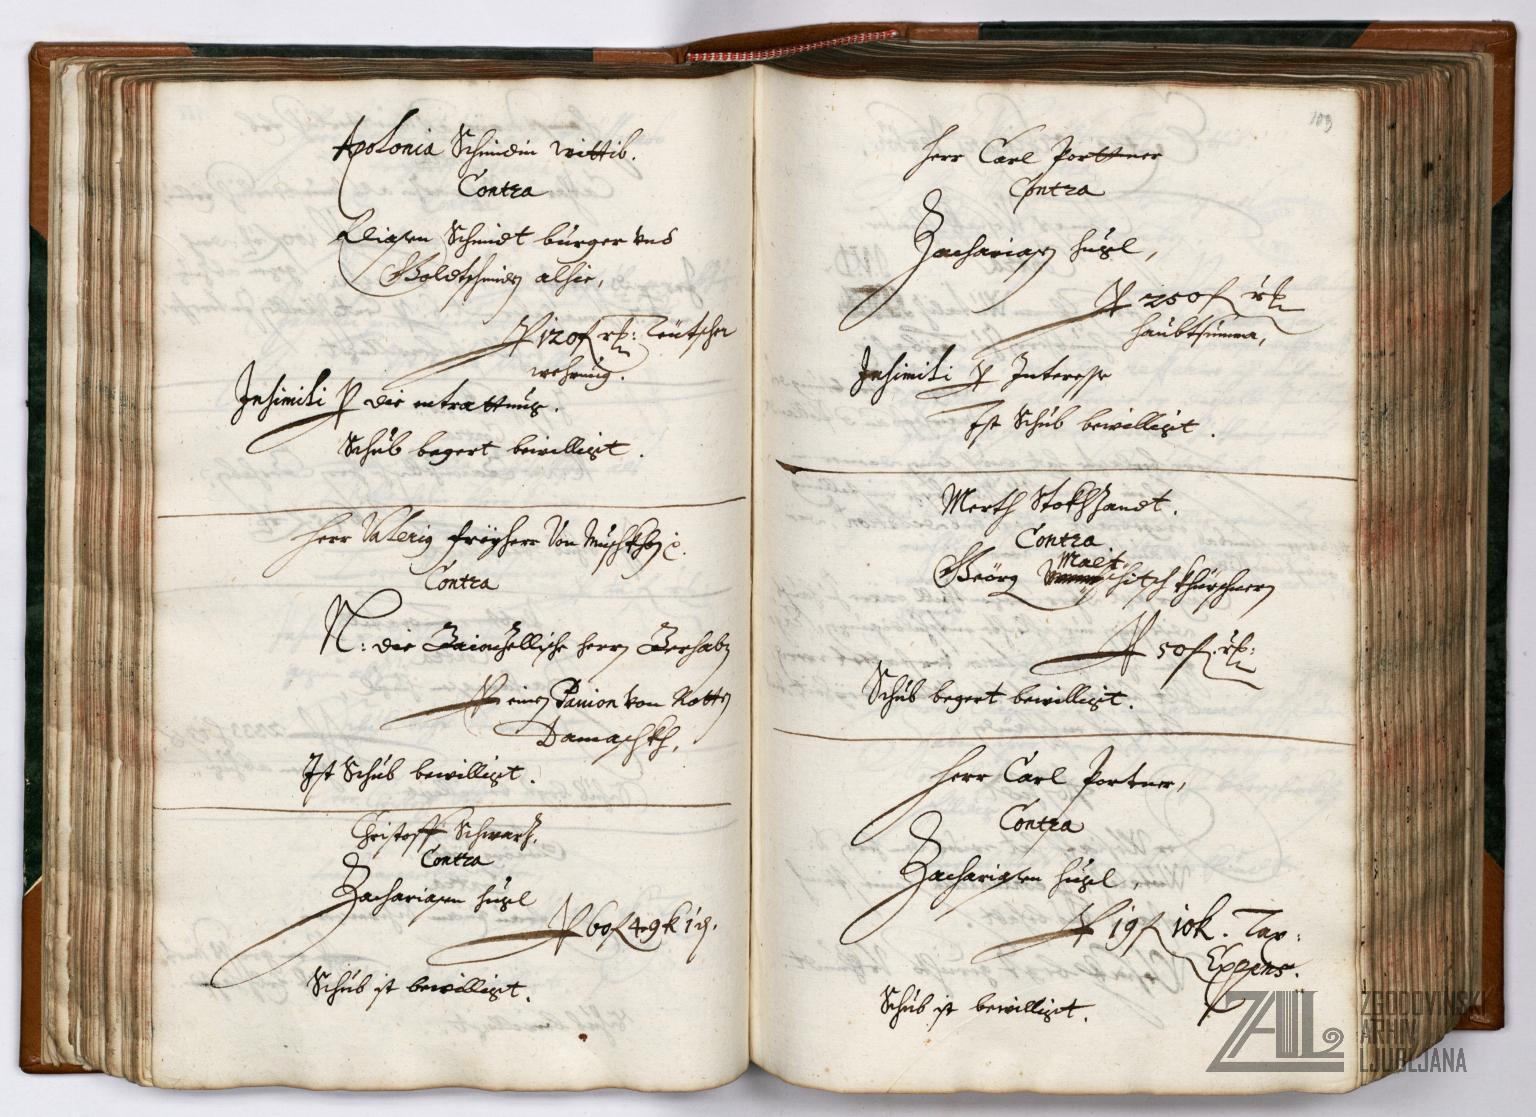 Apolonia Schmidin Wittib.
Contra
Eliasen Schmidt burger vnd
Goldtschmidt alhie,
P 120 f rh: Teütscher
wehrung.
In simili P die
Schub begert bewilliget.
Herr Valerius Freyherr Von
Contra
N: die herrn Gerhabn
P einen Pavion von Rotten
Damaschkh,
Ist Schub bewilliget.
Christoff Schwarz.
Contra
Zachariasen Hügel
P 60 f 49 k 1 d.
Schub ist bewilliget.
109
Herr Carl Porttner
Contra
Zachariasen Hügel,
P 250 f rh
haubtsumma,
In simili P Interesse
Ist Schub bewilliget.
Merth Stokhzandt.
Contra
Geörg Mait schitsch Khürschnern
P 50 f. rh:
Schub begert bewilliget.
Herr Carl Portner,
Contra
Zachariasen Hügel,
P 19 f 10 k. Tax:
Expens.
Schub ist bewilliget.
ZAL ZGODOVINSKI
ARHIV
LJUBLJANA